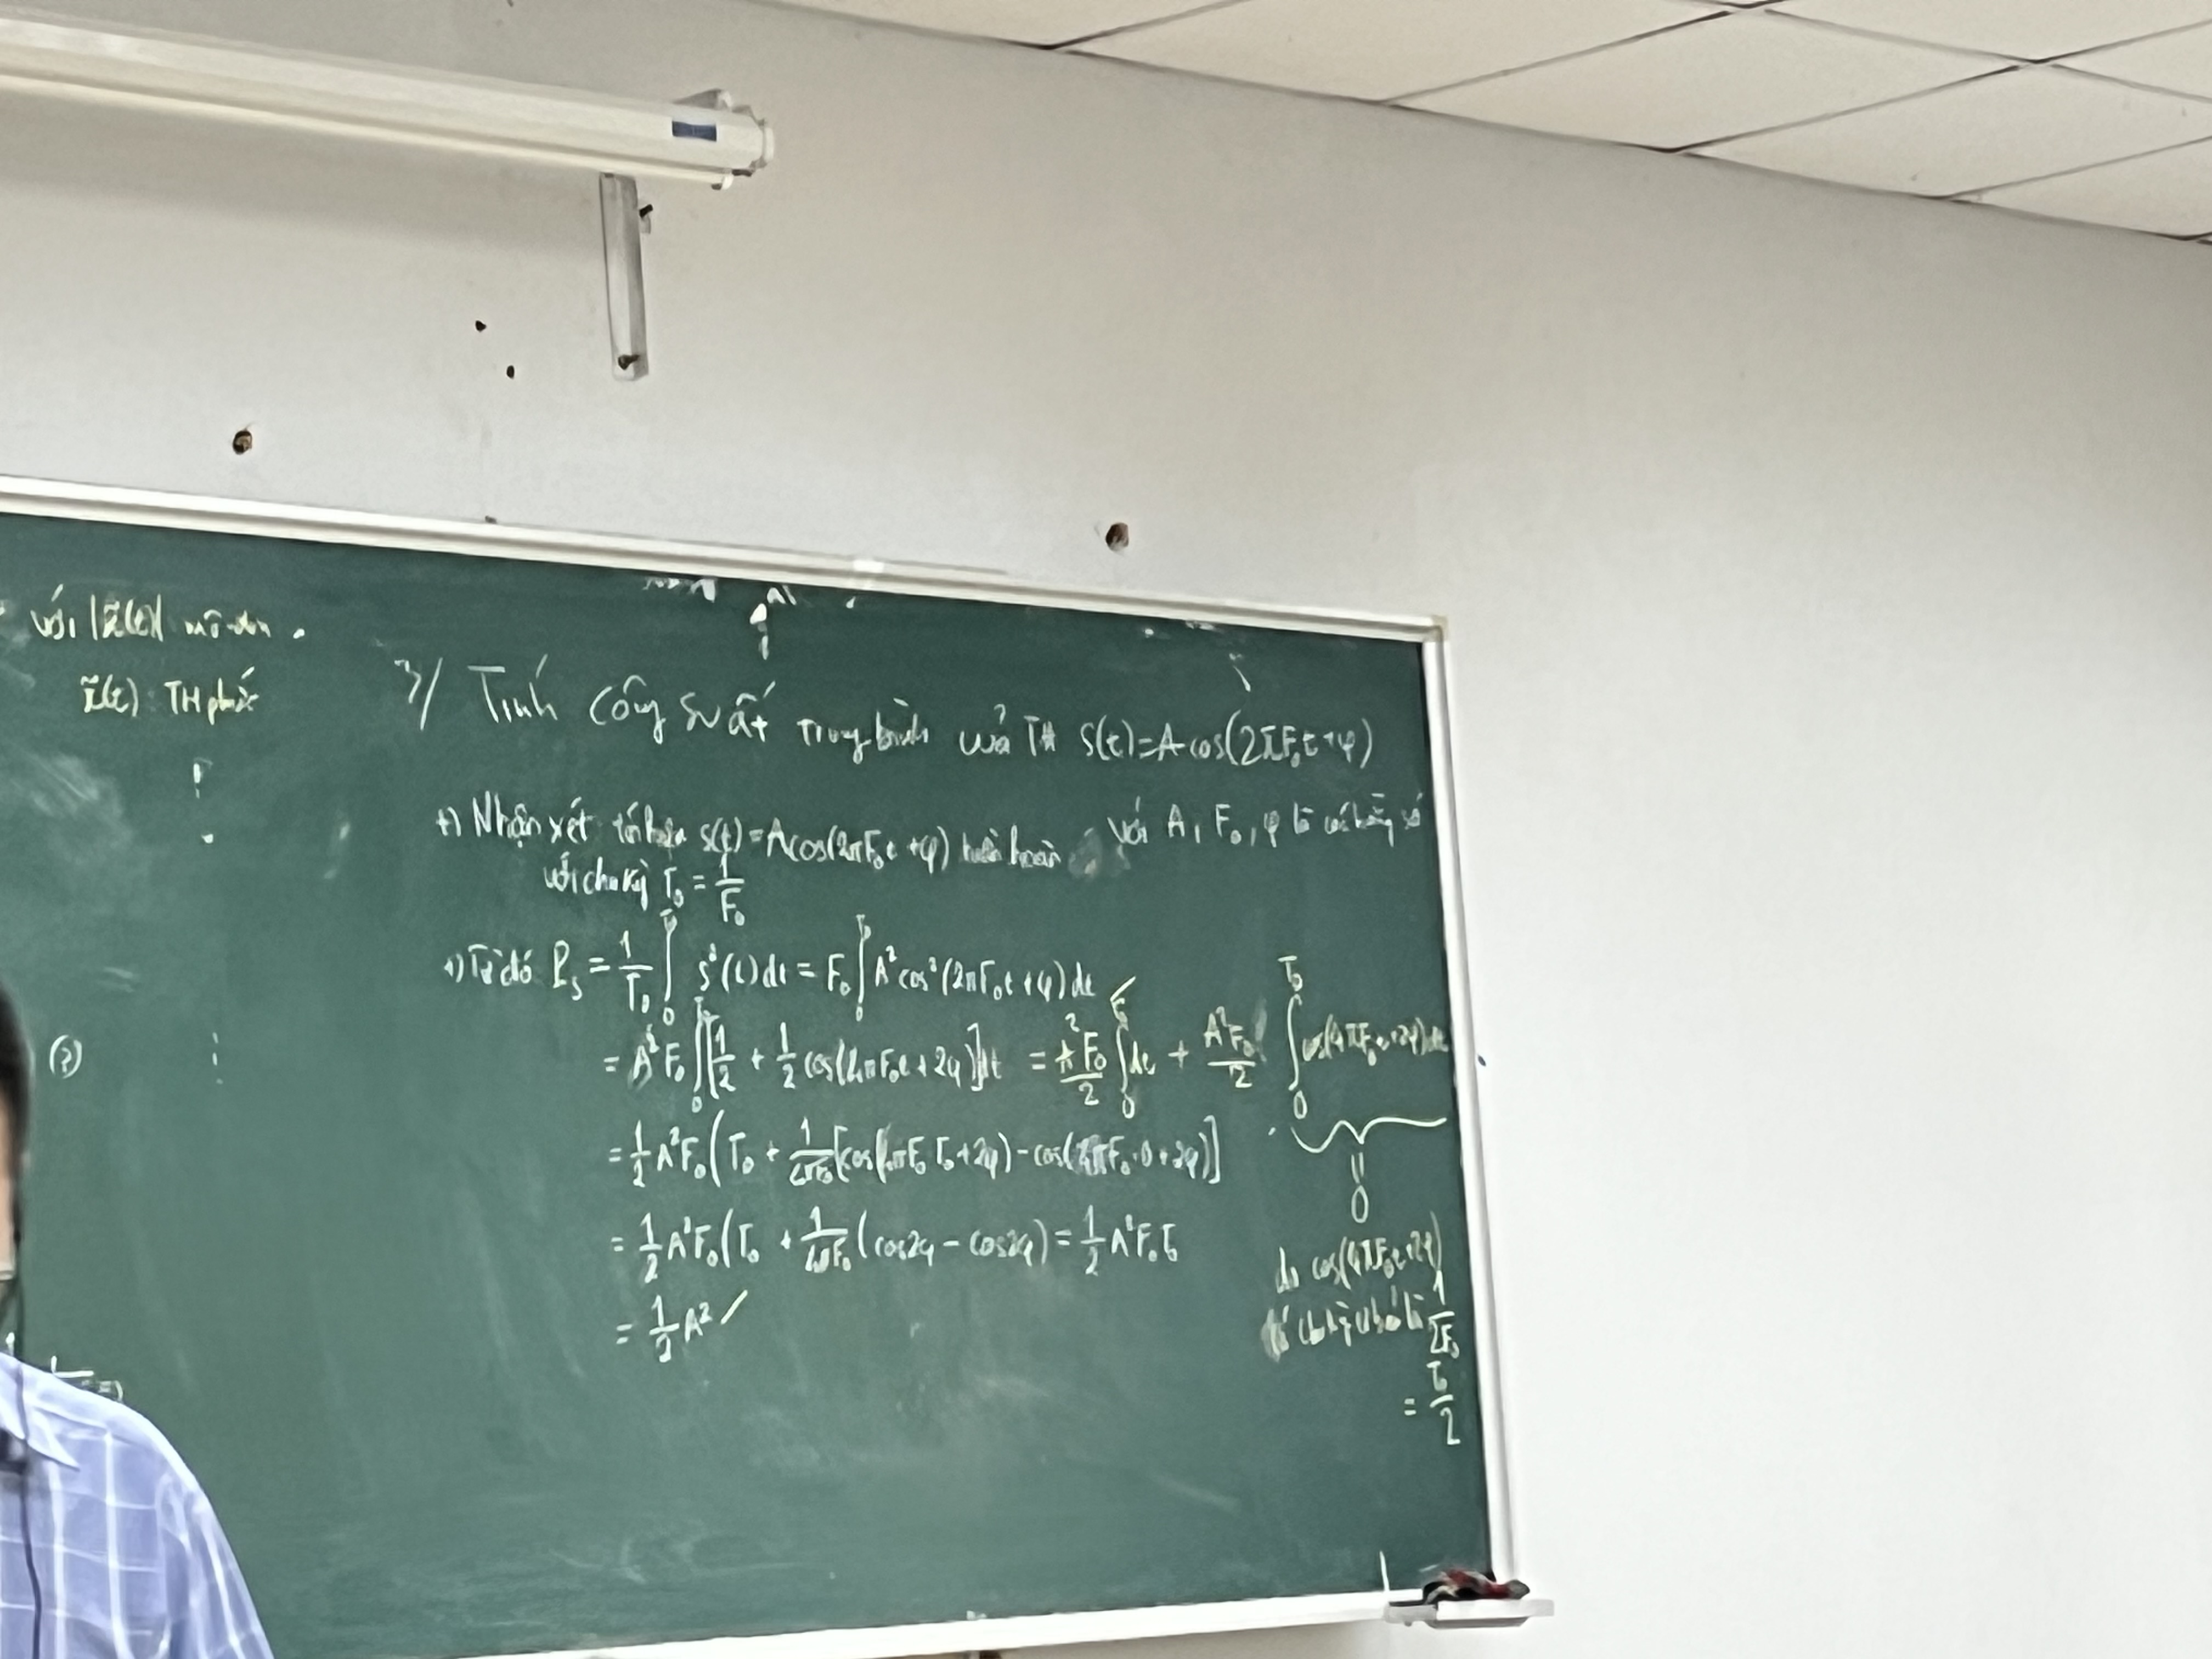 với |x̃(t)| mô-đun.
x̃(t): TH phức
3/ Tính công suất trung bình của TH S(t)=A cos(2πF₀t+φ)
với A, F₀, φ là các hằng số
+) Nhận xét tín hiệu s(t)=Acos(2πF₀t+φ) tuần hoàn
với chu kỳ T₀ = 1/F₀
+) Từ đó P_s = 1/T₀ ∫₀^T₀ s²(t)dt = F₀ ∫₀^T₀ A²cos²(2πF₀t+φ)dt
= A²F₀ ∫₀^T₀ [1/2 + 1/2 cos(4πF₀t+2φ)]dt = A²F₀/2 ∫₀^T₀ dt + A²F₀/2 ∫₀^T₀ cos(4πF₀t+2φ)dt
= 1/2 A²F₀(T₀ + 1/4πF₀[cos(4πF₀T₀+2φ)-cos(4πF₀·0+2φ)]
= 1/2 A²F₀(T₀ + 1/4πF₀(cos2φ - cos2φ) = 1/2 A²F₀T₀
= 1/2 A²
=
0
do cos(4πF₀t+2φ)
có chu kỳ cơ bản là 1/2F₀
= T₀/2
(?)